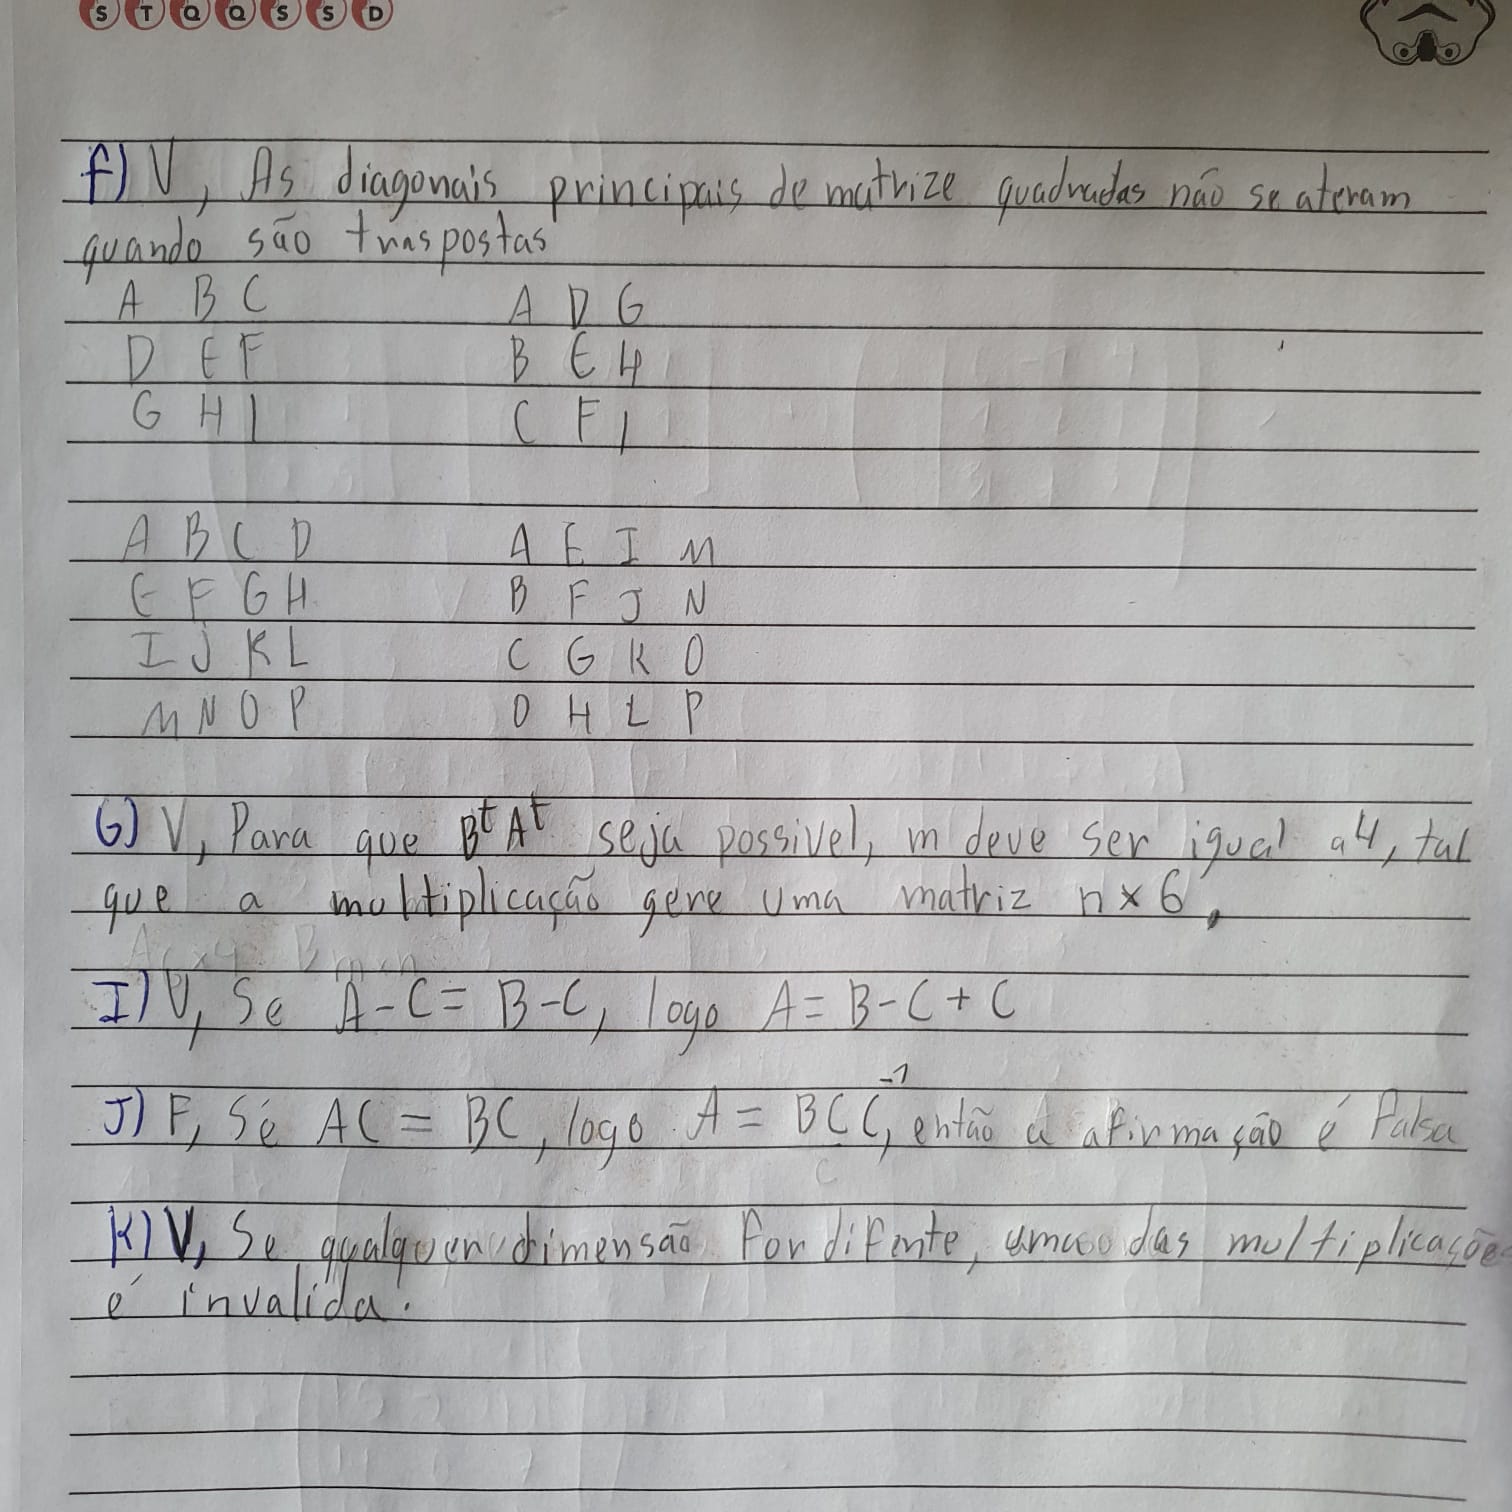 S T Q Q S S D
f) V, As diagonais principais de matrize quadradas não se ateram
quando são traspostas
A B C A D G
D E F B E H
G H I C F I
A B C D A E I M
E F G H B F J N
I J K L C G K O
M N O P D H L P
G) V, Para que BᵗAᵗ seja possivel, m deve ser igual a 4, tal
que a multiplicação gere uma matriz n x 6.
I) V, Se A-C = B-C, logo A = B-C+C
J) F, Se AC = BC, logo A = BCC⁻¹, então a afirmação é falsa
K) V, Se dimensão for difente, das multiplicações
é invalida.